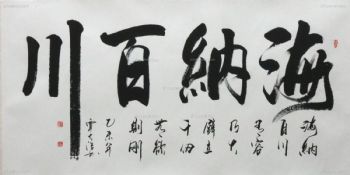 海納百川
海納
百川
有容
乃大
壁立
千仞
無欲
則剛
乙未年